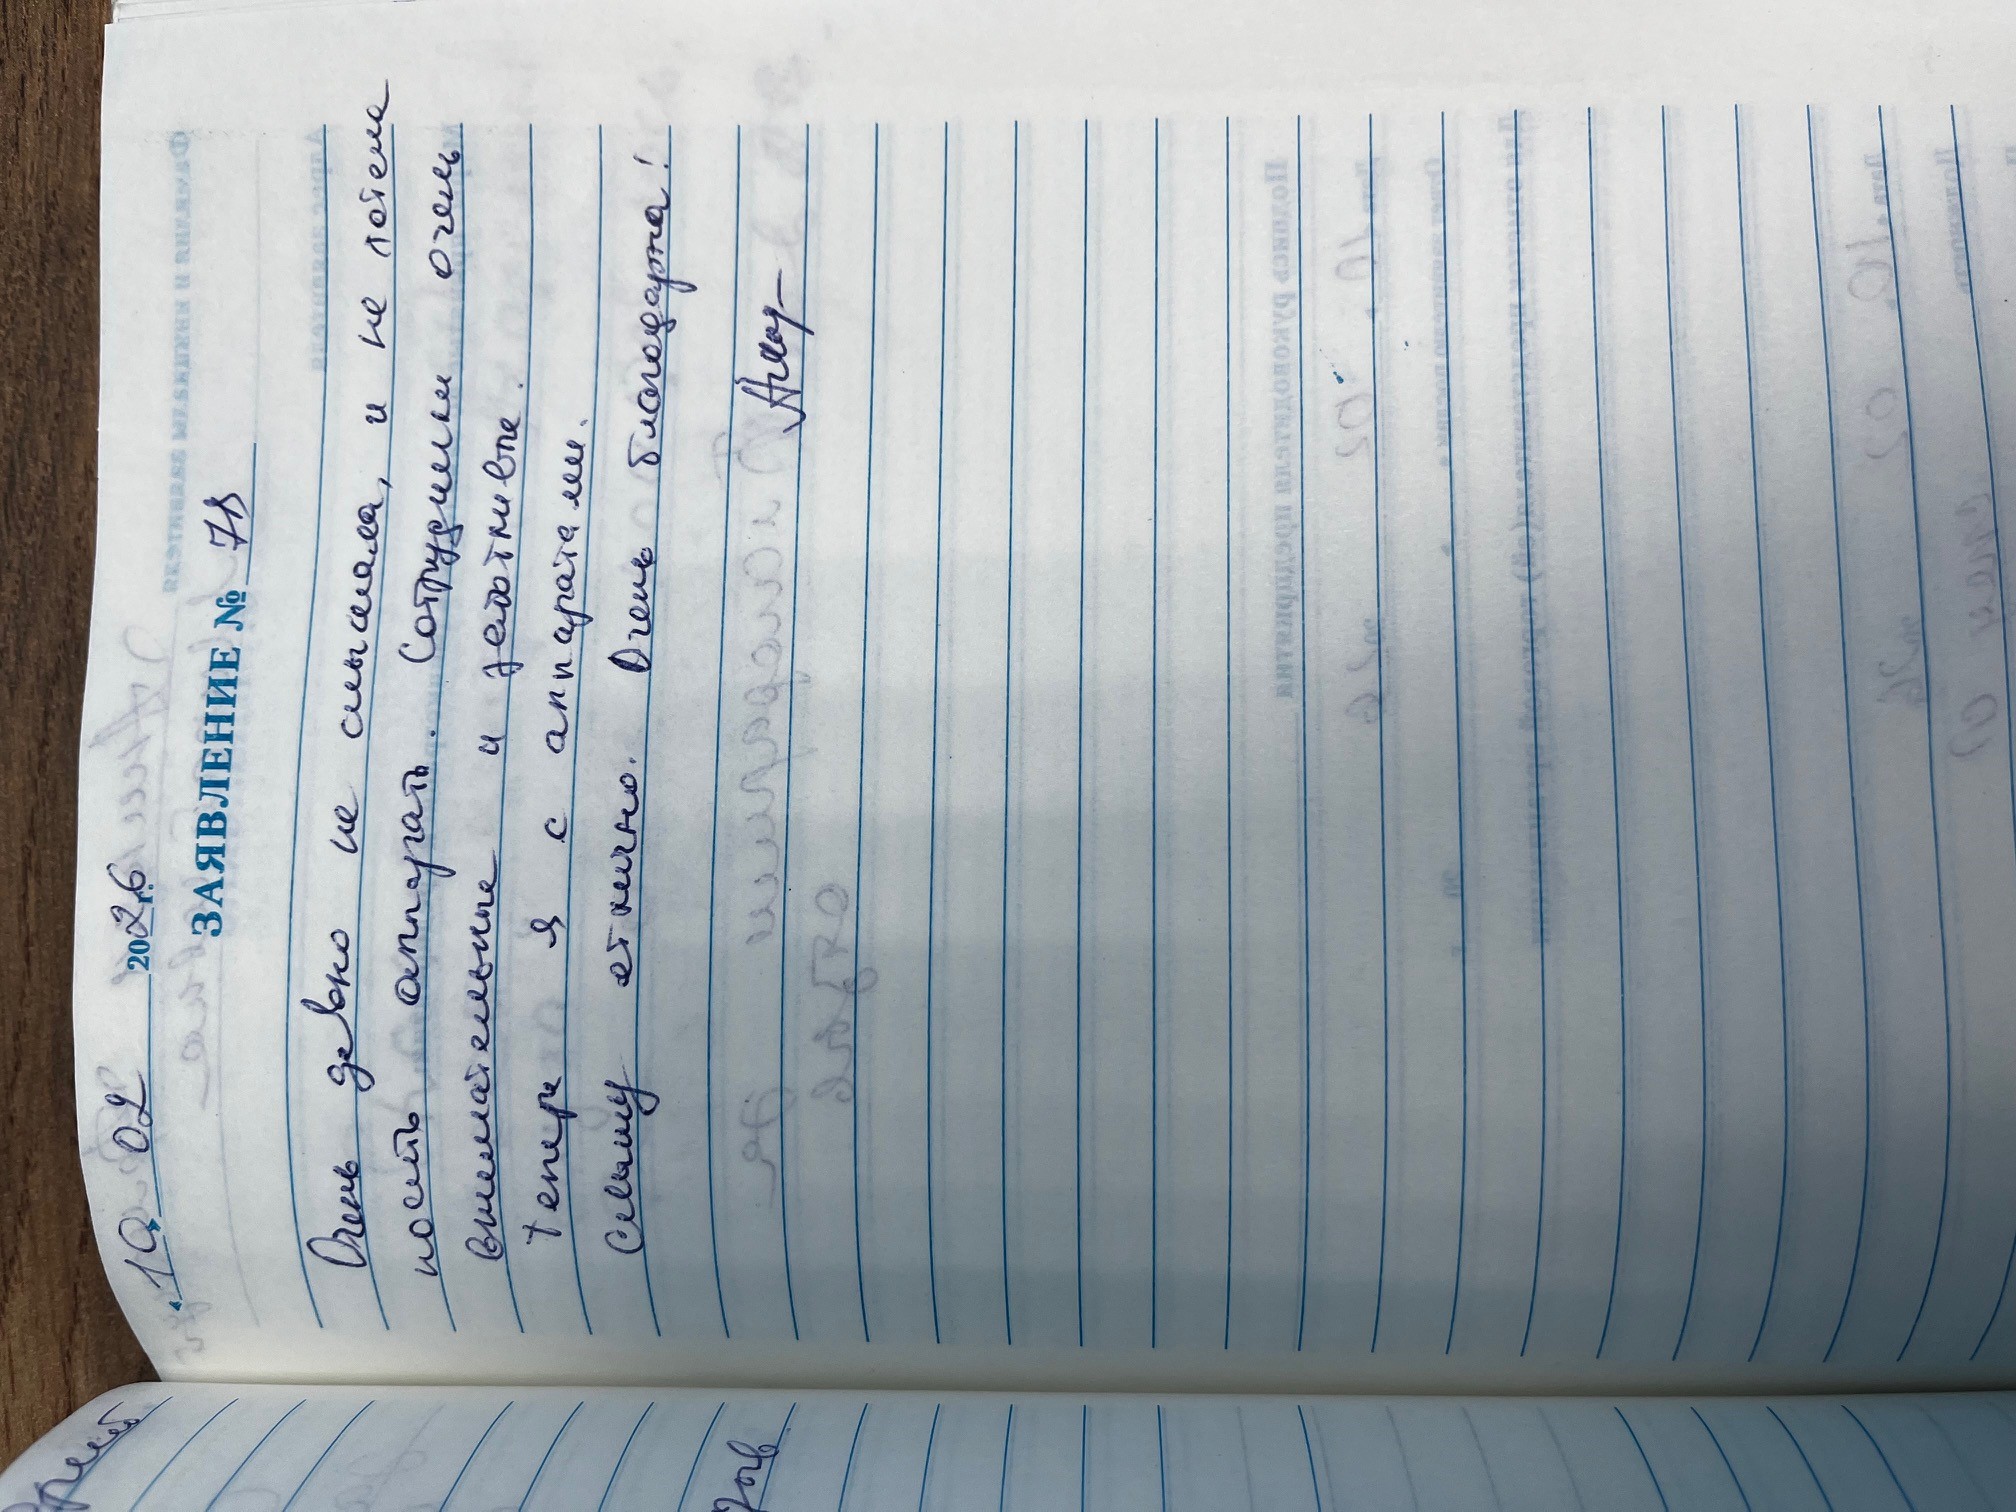 „10" 02 2026 г.
ЗАЯВЛЕНИЕ № 78
Очень давно не слышала, и не хотела
носить аппарат. Сотрудники очень
внимательные и заботливые.
Теперь я с аппаратами.
Слышу отлично. Очень благодарна!